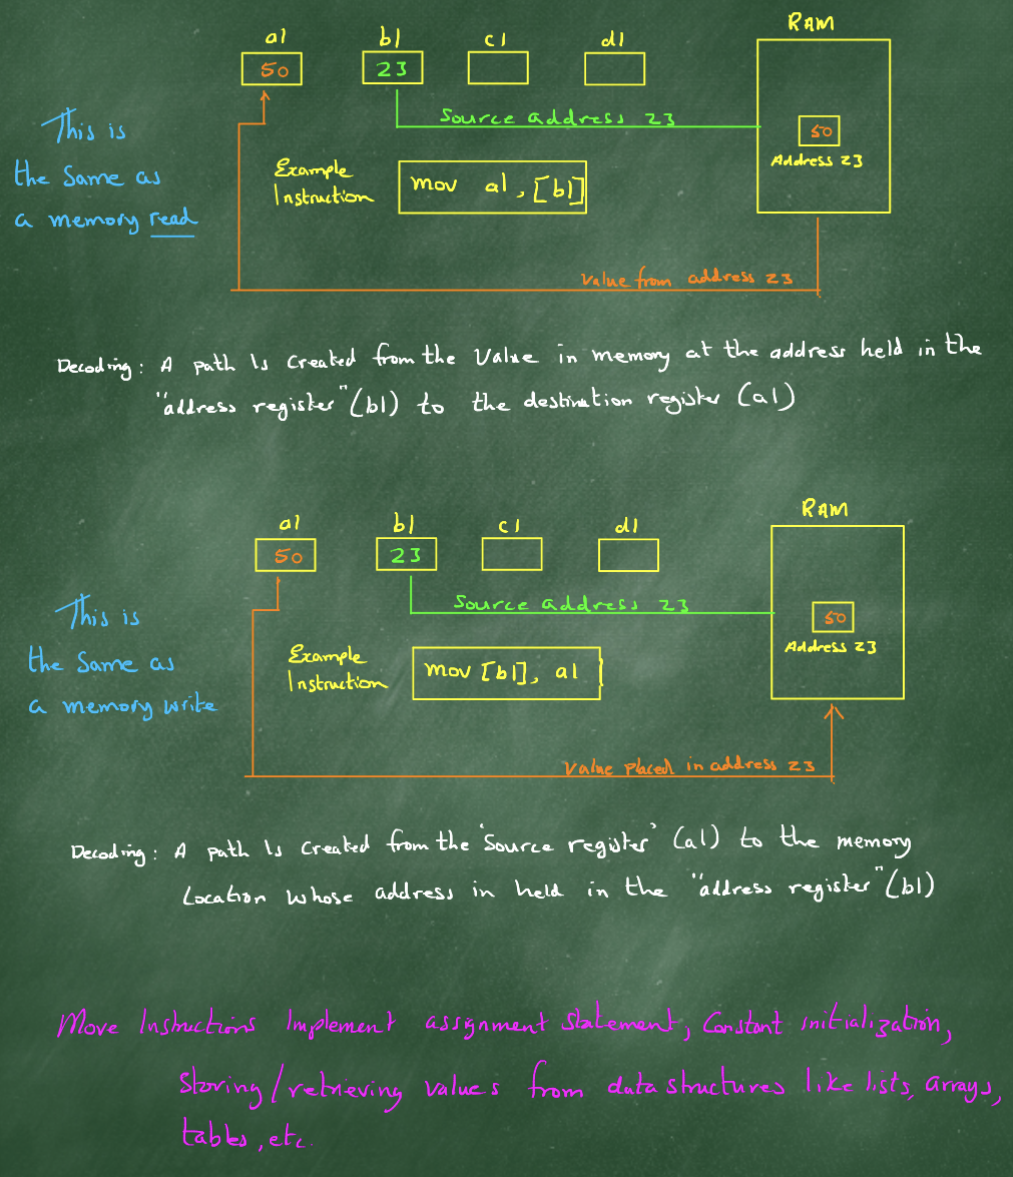 al bl cl dl RAM
50 23
Source address 23
50
Address 23
This is
the Same as
a memory read
Example
Instruction
mov al, [bl]
Value from address 23
Decoding: A path Is Created from the Value in memory at the address held in the
"address register" (bl) to the destination register (al)
al bl cl dl RAM
50 23
Source address 23
50
Address 23
This is
the Same as
a memory write
Example
Instruction
mov [bl], al
Value placed in address 23
Decoding: A path Is Created from the 'Source register' (al) to the memory
Location whose address in held in the "address register" (bl)
Move Instructions Implement assignment Statement, Constant initialization,
Storing/retrieving values from data structures like lists, arrays,
tables, etc.